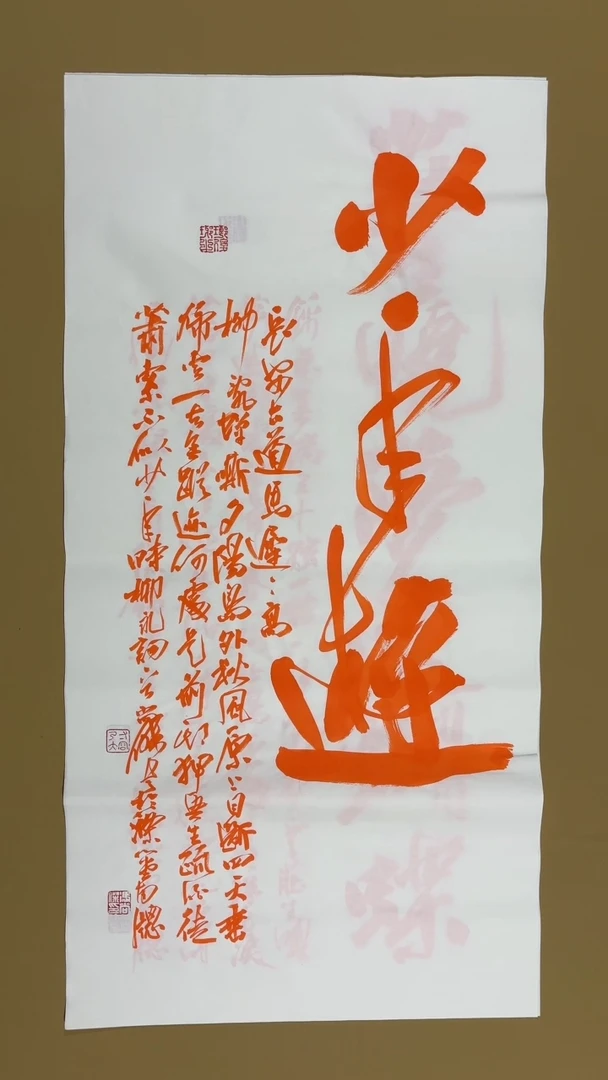 少年遊
長安古道馬遲〻高
柳亂蟬嘶夕陽島外秋風原上目斷四天垂
歸雲一去無蹤迹何處是前期狎興生疏酒徒
蕭索不似少年時柳永詞